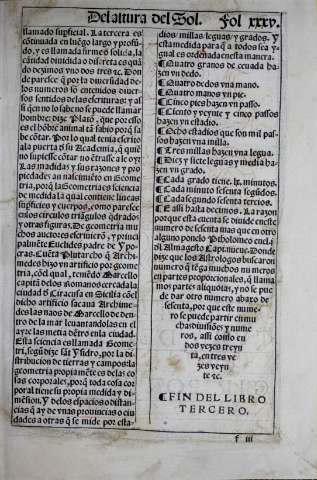 Del altura del Sol. Fol xxxv.
llamado supficial. La tercera es
cōtinuada en luego largo y profū-
do, y es llamada firme o solida, la
cātidad diuidida o discreta es quā
do dezimos vno dos tres ꝛc. Don
de parece q̄ por la diuersidad de-
los numeros sō entendidos diuer-
sos sentidos delas escrituras: y al
q̄ esto no lo sabe no se puede llamar
hombre: dize Platō, que por esso
es el hōbre animal tā sabio porq̄ sa
be cōtar. Por lo qual tenia escrito
ala puerta d̄ su Academia, q̄ quiē
no supiesse cōtar no ētrasse alo oyr
Las medidas y sus razones y pro-
piedades an nascimiēto en Geome
tria, porq̄ la Geometria es sciencia
de medida la qual contiene lineas
supficies y cuerpos, como parescē
enlos circulos triāgulos q̄drados
y otras figuras. De geometria mu
chos autores escriuierō, y prīnci
palmēte Euclides padre de Y po-
cras. Cuēta Plutarcho q̄ Archi-
medes hizo vn artificio por geome
tria, cōel qual, teniēdo Marcello
capitā delos Romanos cercada la
ciudad d̄ Ciracusa en Sicilia cōel
dicho artificio sacaua Archime-
des las naos de Marcello de den-
tro dela mar leuantandolas en el
ayre las metia dētro enla ciudad.
Esta sciencia es llamada Geome-
tria, segū dize sāt Ysidro, por la di-
stribucion de tierras y campos: la
geometria propiamēte es delas co
sas corporales, porq̄ toda cosa cor
poral tiene su propia medida y di-
mēsion. Y delos espacios o distan-
cias q̄ ay de vnas prouincias o ciu
dades a otras q̄ se mide por esta-
dios: millas: leguas: y grados. Y
esta medida para q̄ a todos sea y-
gual es ordenada en esta manera.
¶ Quatro granos de ceuada ha-
zen vn dedo.
¶ Quatro dedos vna mano.
¶ Quatro manos vn pie.
¶ Cinco pies hazen vn passo.
¶ Ciento y veynte y cinco passos
hazen vn estadio.
¶ Ocho estadios que son mil pas-
sos hazen vna milla.
¶ Tres millas hazen vna legua.
¶ Diez y siete leguas y media ha-
zen vn grado.
¶ Cada grado tiene .lx. minutos.
¶ Cada minuto sesenta segūdos.
¶ Cada segundo sesenta tercios.
¶ Y assi hasta dezimos. La razon
porque esta cuenta se diuide eneste
numero de sesenta mas que en otro
alguno ponelo Ptholomeo enel a
l Almagesto Cap. nueue. Donde
dize que los Astrologos buscarō
numero q̄ tēga muchos numeros
en partes proporcionales, q̄ llama
mos partes aliquotas, y no se pue
de dar otro numero abaxo de
sesenta, por que este nume-
ro se puede partir en mu
chas diuisiōes y nume
ros, assi como en
dos vezes treyn
ta, en tres ve
zes veyn
te ꝛc.
¶ FIN DEL LIBRO
TERCERO.
f iij